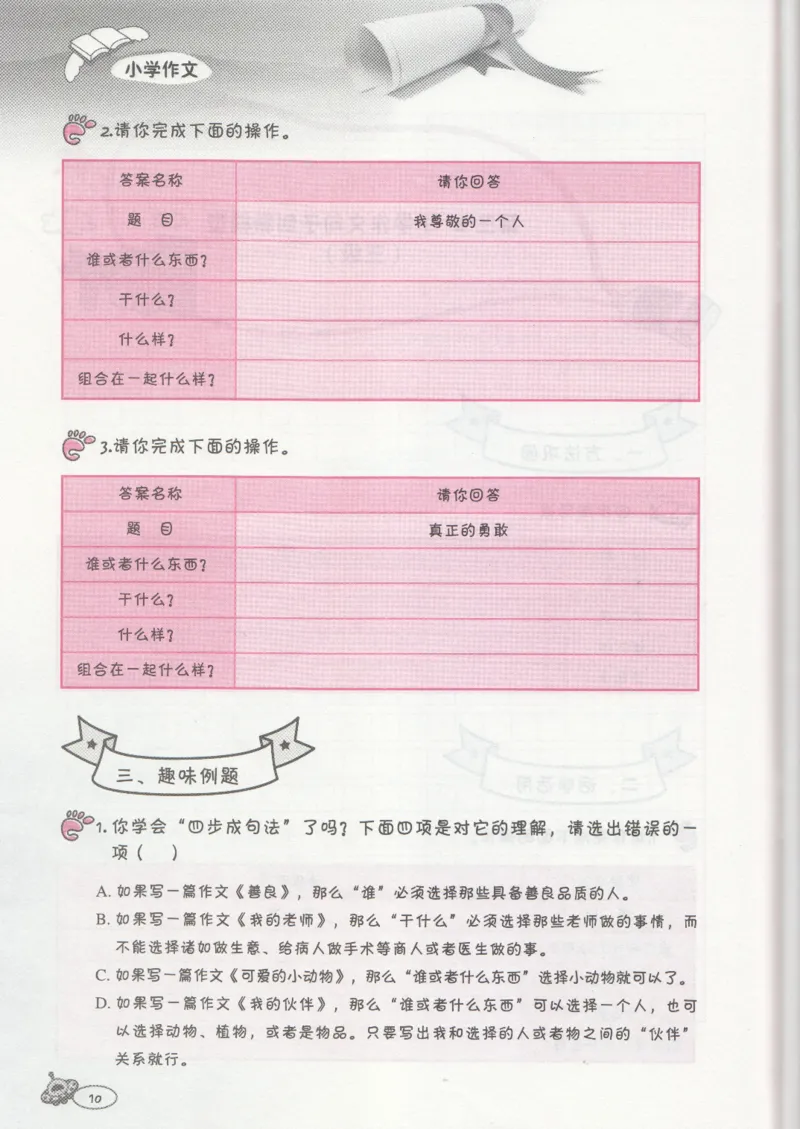 小学作文
2.请你完成下面的操作。
答案名称 请你回答
题 目 我尊敬的一个人
谁或者什么东西?
干什么?
什么样?
组合在一起什么样?
3.请你完成下面的操作。
答案名称 请你回答
题 目 真正的勇敢
谁或者什么东西?
干什么?
什么样?
组合在一起什么样?
三、趣味例题
1.你学会“四步成句法”了吗?下面四项是对它的理解,请选出错误的一
项( )
A.如果写一篇作文《善良》,那么“谁”必须选择那些具备善良品质的人。
B.如果写一篇作文《我的老师》,那么“干什么”必须选择那些老师做的事情,而
不能选择诸如做生意、给病人做手术等商人或者医生做的事。
C.如果写一篇作文《可爱的小动物》,那么“谁或者什么东西”选择小动物就可以了。
D.如果写一篇作文《我的伙伴》,那么“谁或者什么东西”可以选择一个人,也可
以选择动物、植物,或者是物品。只要写出我和选择的人或者物之间的“伙伴”
关系就行。
10